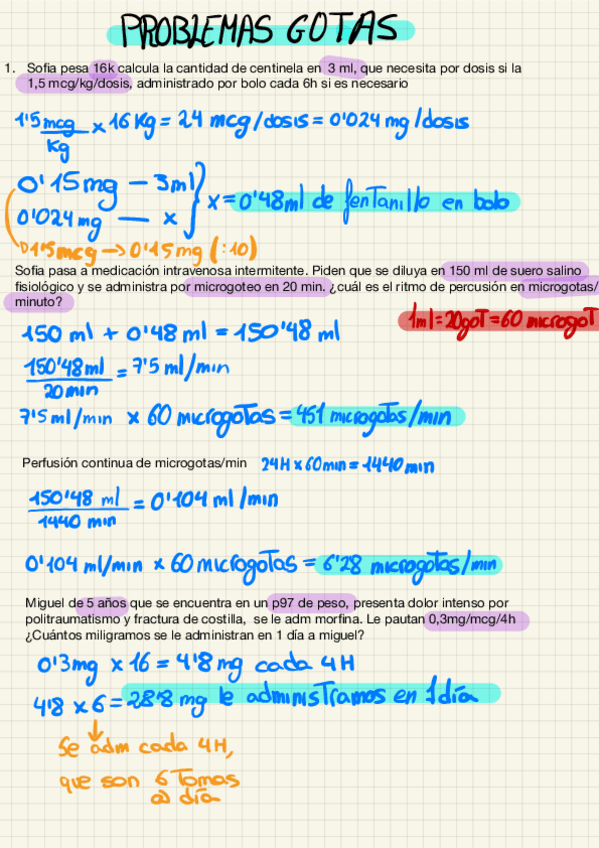 PROBLEMAS GOTAS
1. Sofia pesa 16k calcula la cantidad de centinela en 3 ml, que necesita por dosis si la
1,5 mcg/kg/dosis, administrado por bolo cada 6h si es necesario
1'5 mcg/Kg x 16 Kg = 24 mcg/dosis = 0'024 mg/dosis
0'15mg — 3ml
0'024 mg — x
x = 0'48ml de fentanillo en bolo
1'5mcg → 0'15 mg (:10)
Sofia pasa a medicación intravenosa intermitente. Piden que se diluya en 150 ml de suero salino
fisiológico y se administra por microgoteo en 20 min. ¿cuál es el ritmo de percusión en microgotas/
minuto?
1ml = 20got = 60 microgot
150 ml + 0'48 ml = 150'48 ml
150'48ml / 20min = 7'5 ml/min
7'5 ml/min x 60 microgotas = 451 microgotas/min
Perfusión continua de microgotas/min 24H x 60min = 1440 min
150'48 ml / 1440 min = 0'104 ml/min
0'104 ml/min x 60 microgotas = 6'28 microgotas/min
Miguel de 5 años que se encuentra en un p97 de peso, presenta dolor intenso por
politraumatismo y fractura de costilla, se le adm morfina. Le pautan 0,3mg/mcg/4h
¿Cuántos miligramos se le administran en 1 día a miguel?
0'3mg x 16 = 4'8 mg cada 4H
4'8 x 6 = 28'8 mg le administramos en 1 día
Se adm cada 4H,
que son 6 tomas
al día